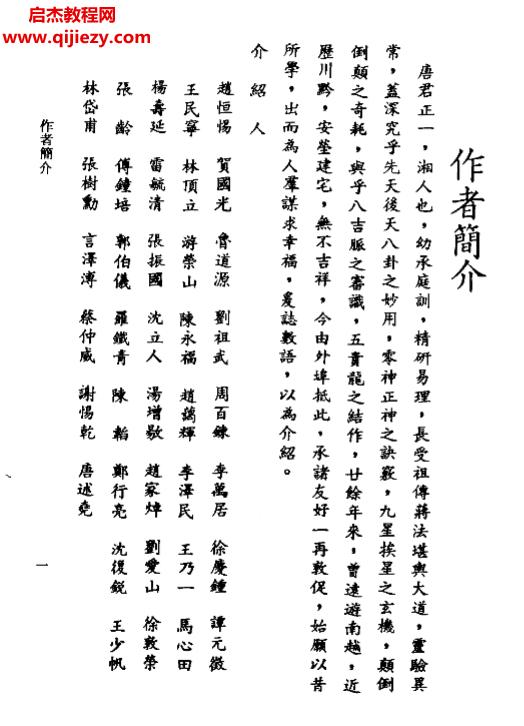 启杰教程网
www.qijiezy.com
作者簡介
唐君正一，湘人也，幼承庭訓，精研易理，長受祖傳蔣法堪輿大道，靈驗異
常，蓋深究乎先天後天八卦之妙用，零神正神之訣竅，九星挨星之玄機，顛倒
倒顛之奇耗，與乎八吉脈之審識，五貴龍之結作，廿餘年來，曾遠遊南越，近
歷川黔，安塋建宅，無不吉祥，今由外埠抵此，承諸友好一再敦促，始願以昔
所學，出而為人羣謀求幸福，爰誌數語，以為介紹。
介紹人
趙恒惕　賀國光　魯道源　劉祖武　周百鍊　李萬居　徐慶鍾　譚元徵
王民寧　林頂立　游榮山　陳永福　趙藹輝　李澤民　王乃一　馬心田
楊壽延　雷毓清　張振國　沈立人　湯增敭　趙家焯　劉愛山　徐敦榮
張　齡　傅鐘培　郭伯儀　羅鐵青　陳　韜　鄭行亮　沈復銳　王少帆
林岱甫　張樹勳　言澤溥　蔡仲威　謝惕乾　唐述堯
作者簡介
一